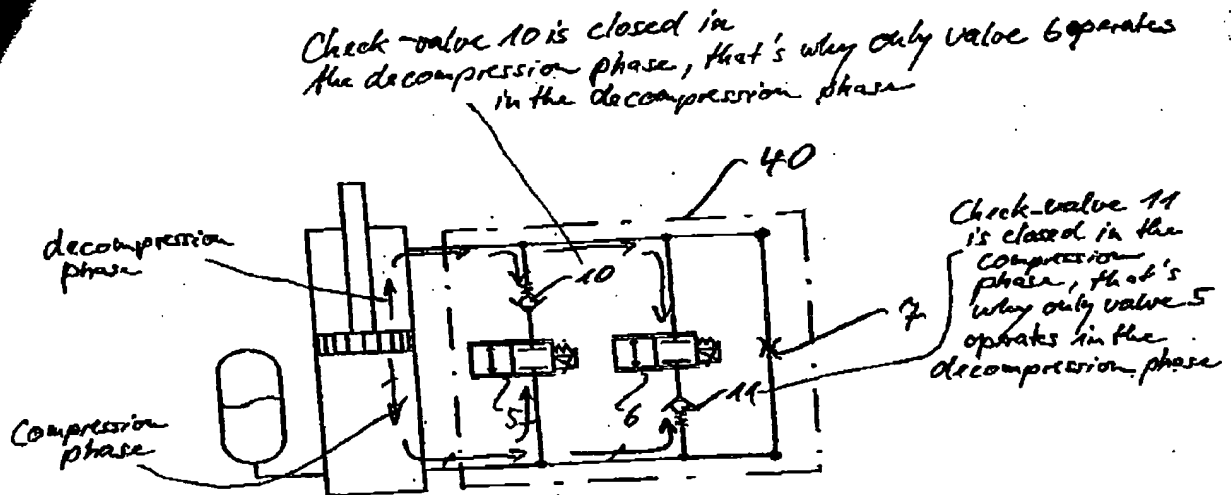 Check-valve 10 is closed in
the decompression phase, that's why only valve 6 operates
in the decompression phase
40
decompression
phase
10
Check-valve 11
is closed in the
compression
phase, that's
why only valve 5
oprates in the
decompression phase
7
5
6
11
Compression
phase